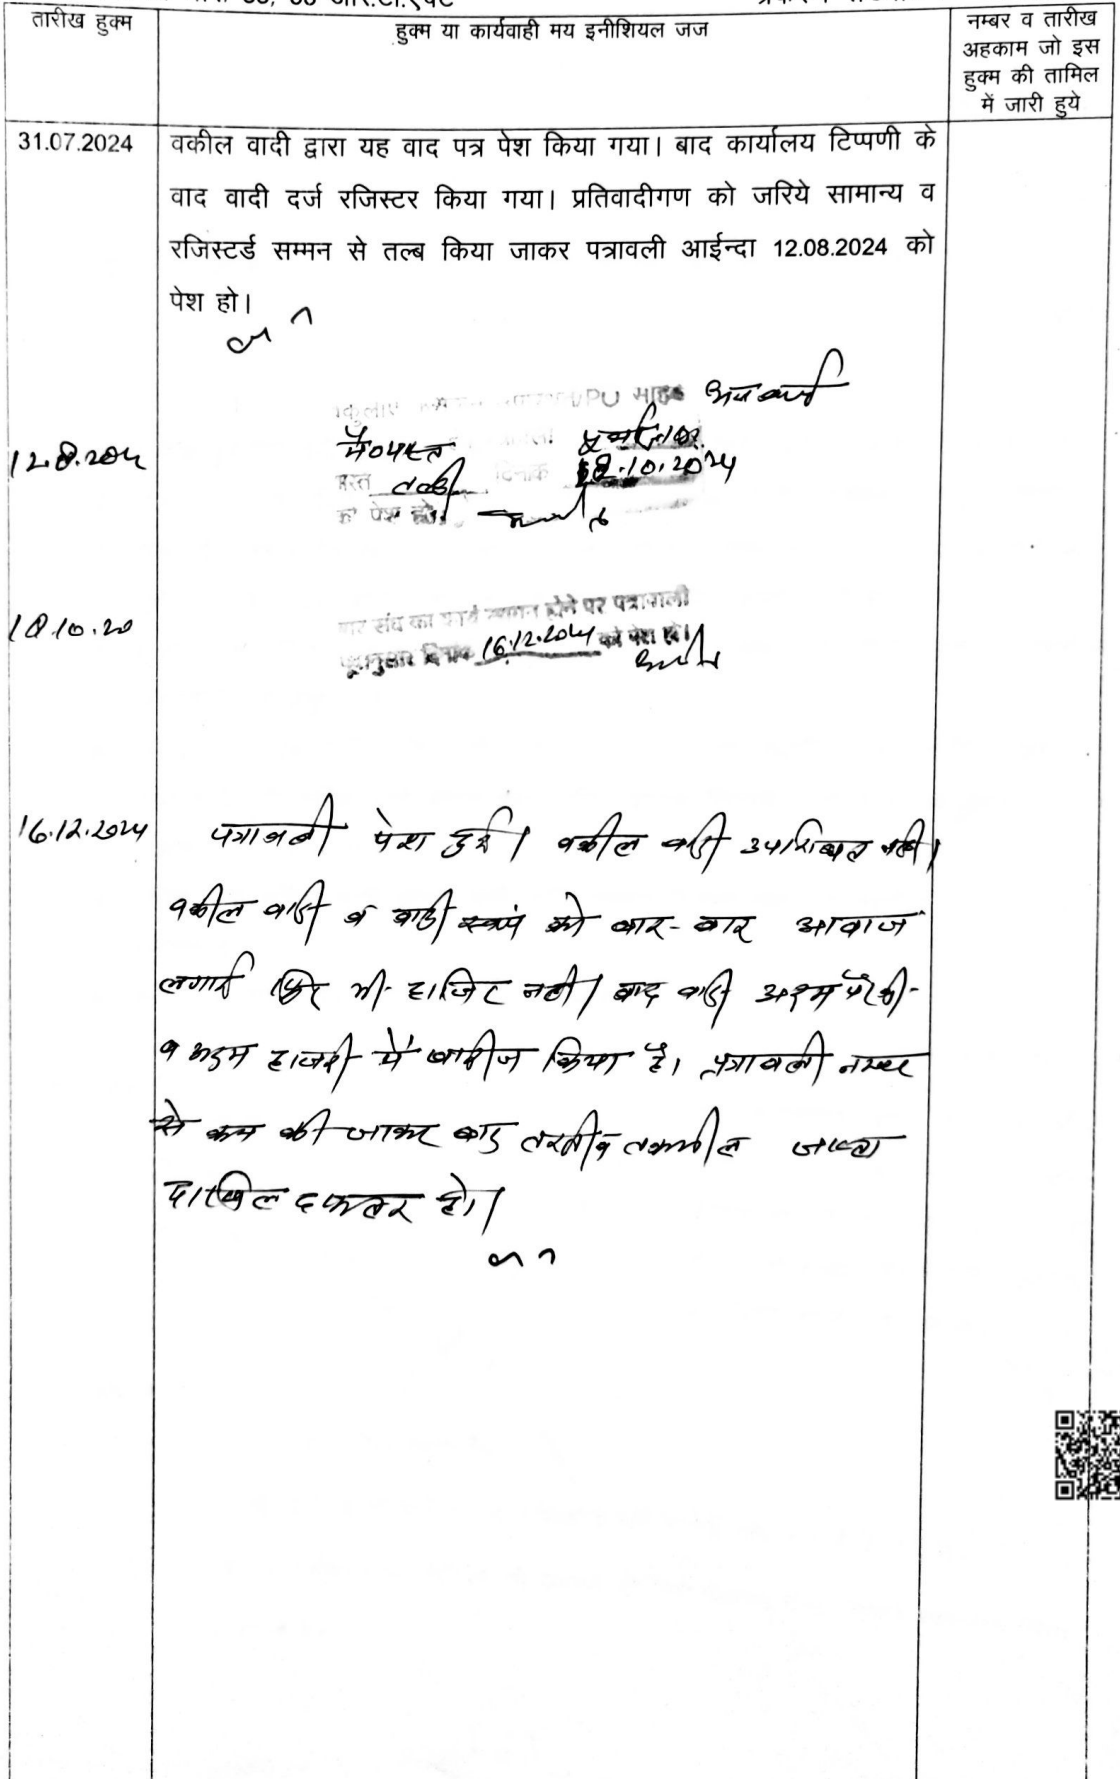 तारीख हुक्म
हुक्म या कार्यवाही मय इनीशियल जज
नम्बर व तारीख
अहकाम जो इस
हुक्म की तामिल
में जारी हुये
31.07.2024
वकील वादी द्वारा यह वाद पत्र पेश किया गया। बाद कार्यालय टिप्पणी के
वाद वादी दर्ज रजिस्टर किया गया। प्रतिवादीगण को जरिये सामान्य व
रजिस्टर्ड सम्मन से तल्ब किया जाकर पत्रावली आईन्दा 12.08.2024 को
पेश हो।
12.8.2024
साहब
दिनांक 18.10.2024
को पेश हो।
18.10.20
संघ का कार्य स्थगन होने पर पत्रावली
पूर्वानुसार दिनांक 16.12.2024 को पेश हो।
16.12.2024
पत्रावली पेश हुई। वकील वादी उपस्थित नहीं।
वकील वादी व वादी स्वयं को बार-बार आवाज
लगाई फिर भी हाजिर नहीं। वाद वादी अदम पैरवी
व अदम हाजरी में खारीज किया है। पत्रावली नम्बर
से कम की जाकर बाद तरतीब तकमील जाब्ता
दाखिल दफ्तर हो।